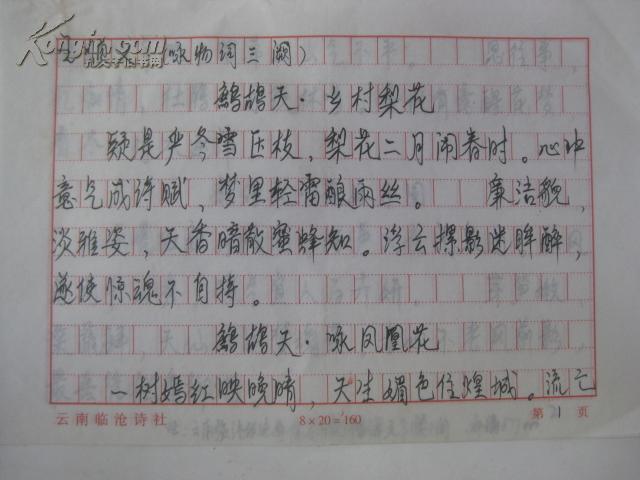 （咏物词三阕）
鹧鸪天·乡村梨花
疑是严冬雪压枝，梨花二月闹春时。心中
意气成诗赋，梦里轻雷酿雨丝。 廉洁貌，
淡雅姿，天香暗散蜜蜂知。浮云掠影迷眸醉，
遂使惊魂不自持。
鹧鸪天·咏凤凰花
一树嫣红映晚晴，天生媚色住煌城。流
云南临沧诗社 8×20=160 第 1 页